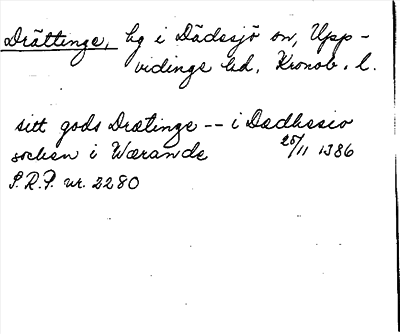 Drättinge, hg i Dädesjö sn, Upp-
vidinge hd, Kronob. l.
sitt gods Drætinge -- i Dædhesio
sochen i Wærande 25/11 1386
S.R.P. nr. 2280